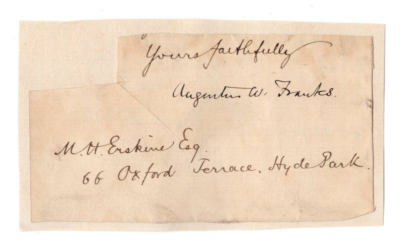 Yours faithfully
Augustus W. Franks.
M. H. Erskine Esq.
66 Oxford Terrace, Hyde Park.